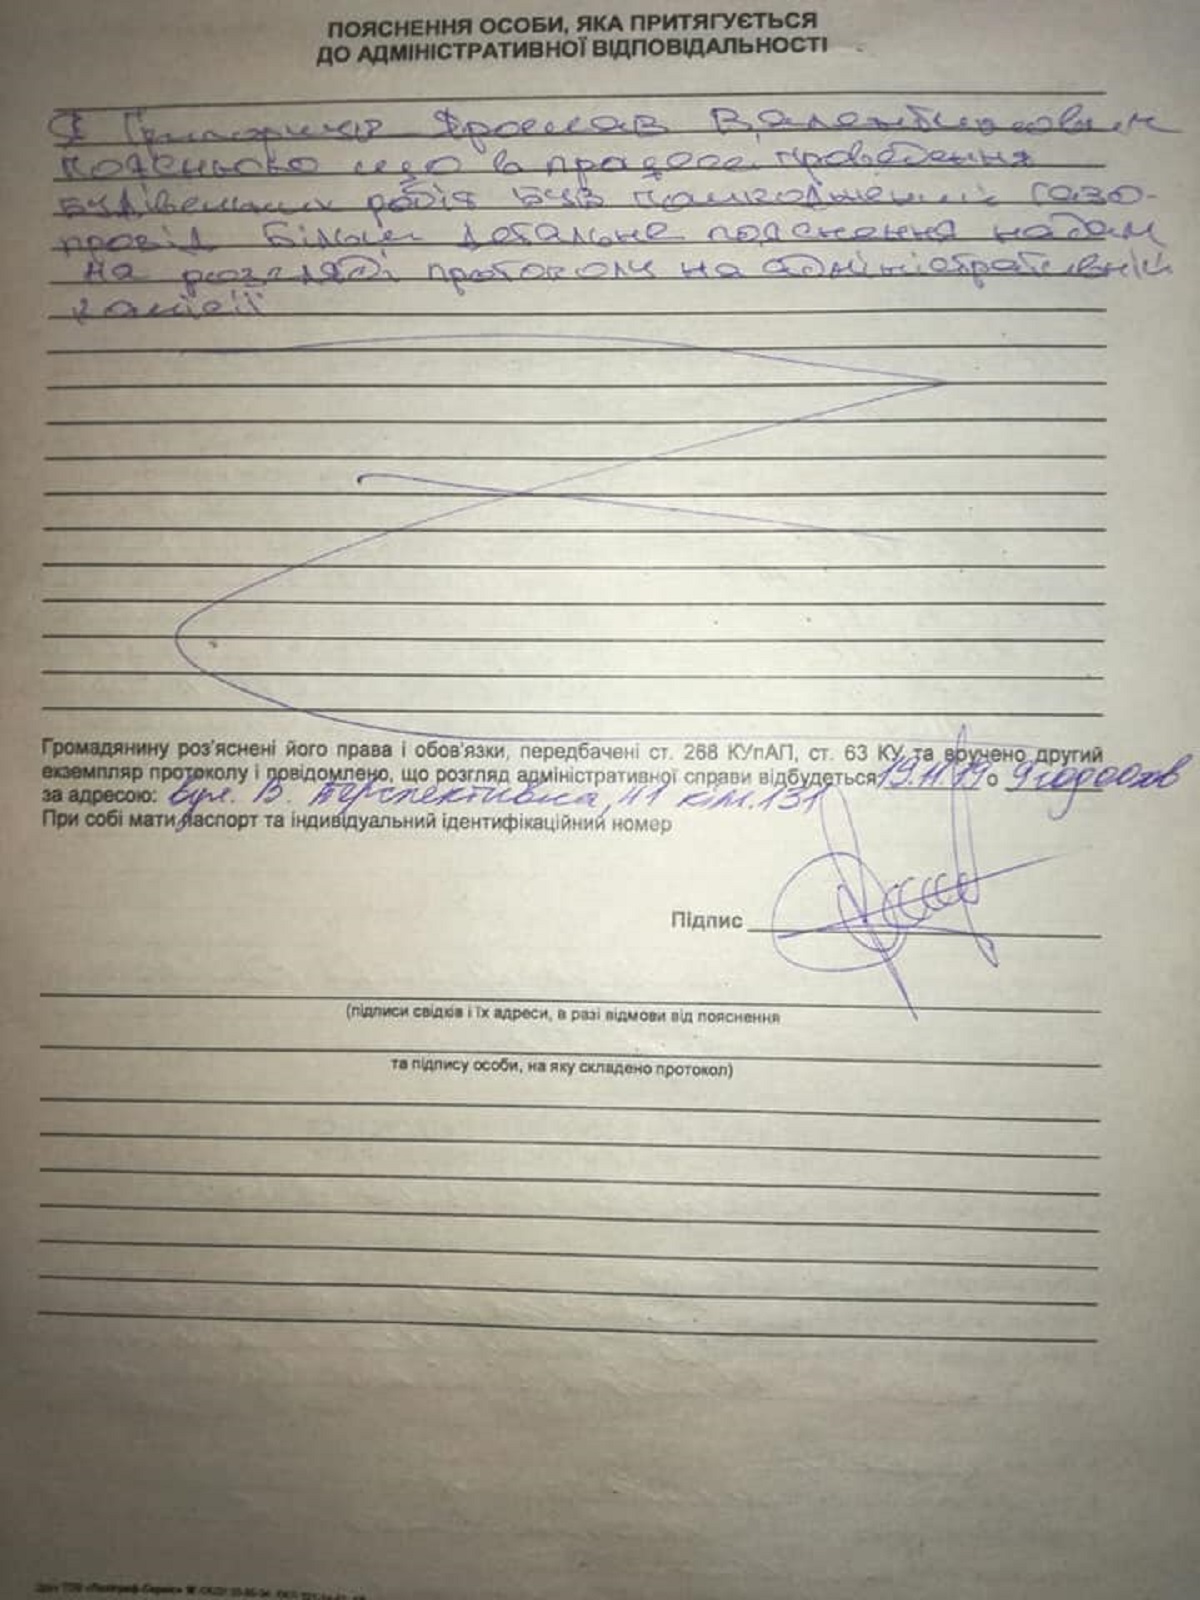 ПОЯСНЕННЯ ОСОБИ, ЯКА ПРИТЯГУЄТЬСЯ
ДО АДМІНІСТРАТИВНОЇ ВІДПОВІДАЛЬНОСТІ
Я Ярослав Валентинович
пояснюю що в процесі проведення
будівельних робіт був пошкоджений газо-
провід Більш детальне пояснення надам
на розгляді протоколу на адміністративній
комісії
Громадянину роз'яснені його права і обов'язки, передбачені ст. 268 КУпАП, ст. 63 КУ та вручено другий
екземпляр протоколу і повідомлено, що розгляд адміністративної справи відбудеться 19.11.19 о 9
за адресою: вул. В. Перспективна, 41 кім. 131
При собі мати паспорт та індивідуальний ідентифікаційний номер
Підпис
(підписи свідків і їх адреси, в разі відмови від пояснення
та підпису особи, на яку складено протокол)